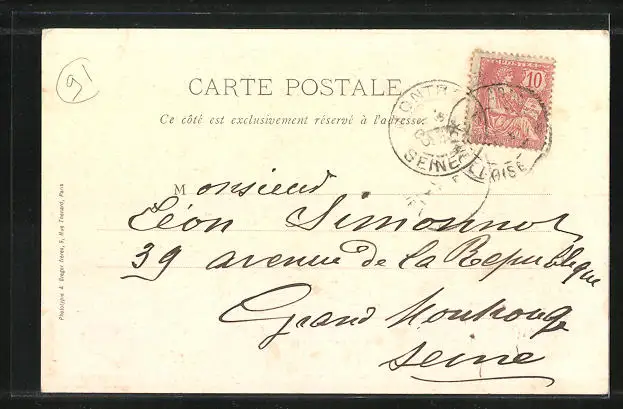 91
CARTE POSTALE
Ce côté est exclusivement réservé à l'adresse.
POSTES
10
MONTR
SEINE
OISE
Monsieur
Léon Simonnot
39 avenue de la République
Grand Montrouge
Seine
Phototypie A. Breger frères, 9, Rue Thénard, Paris